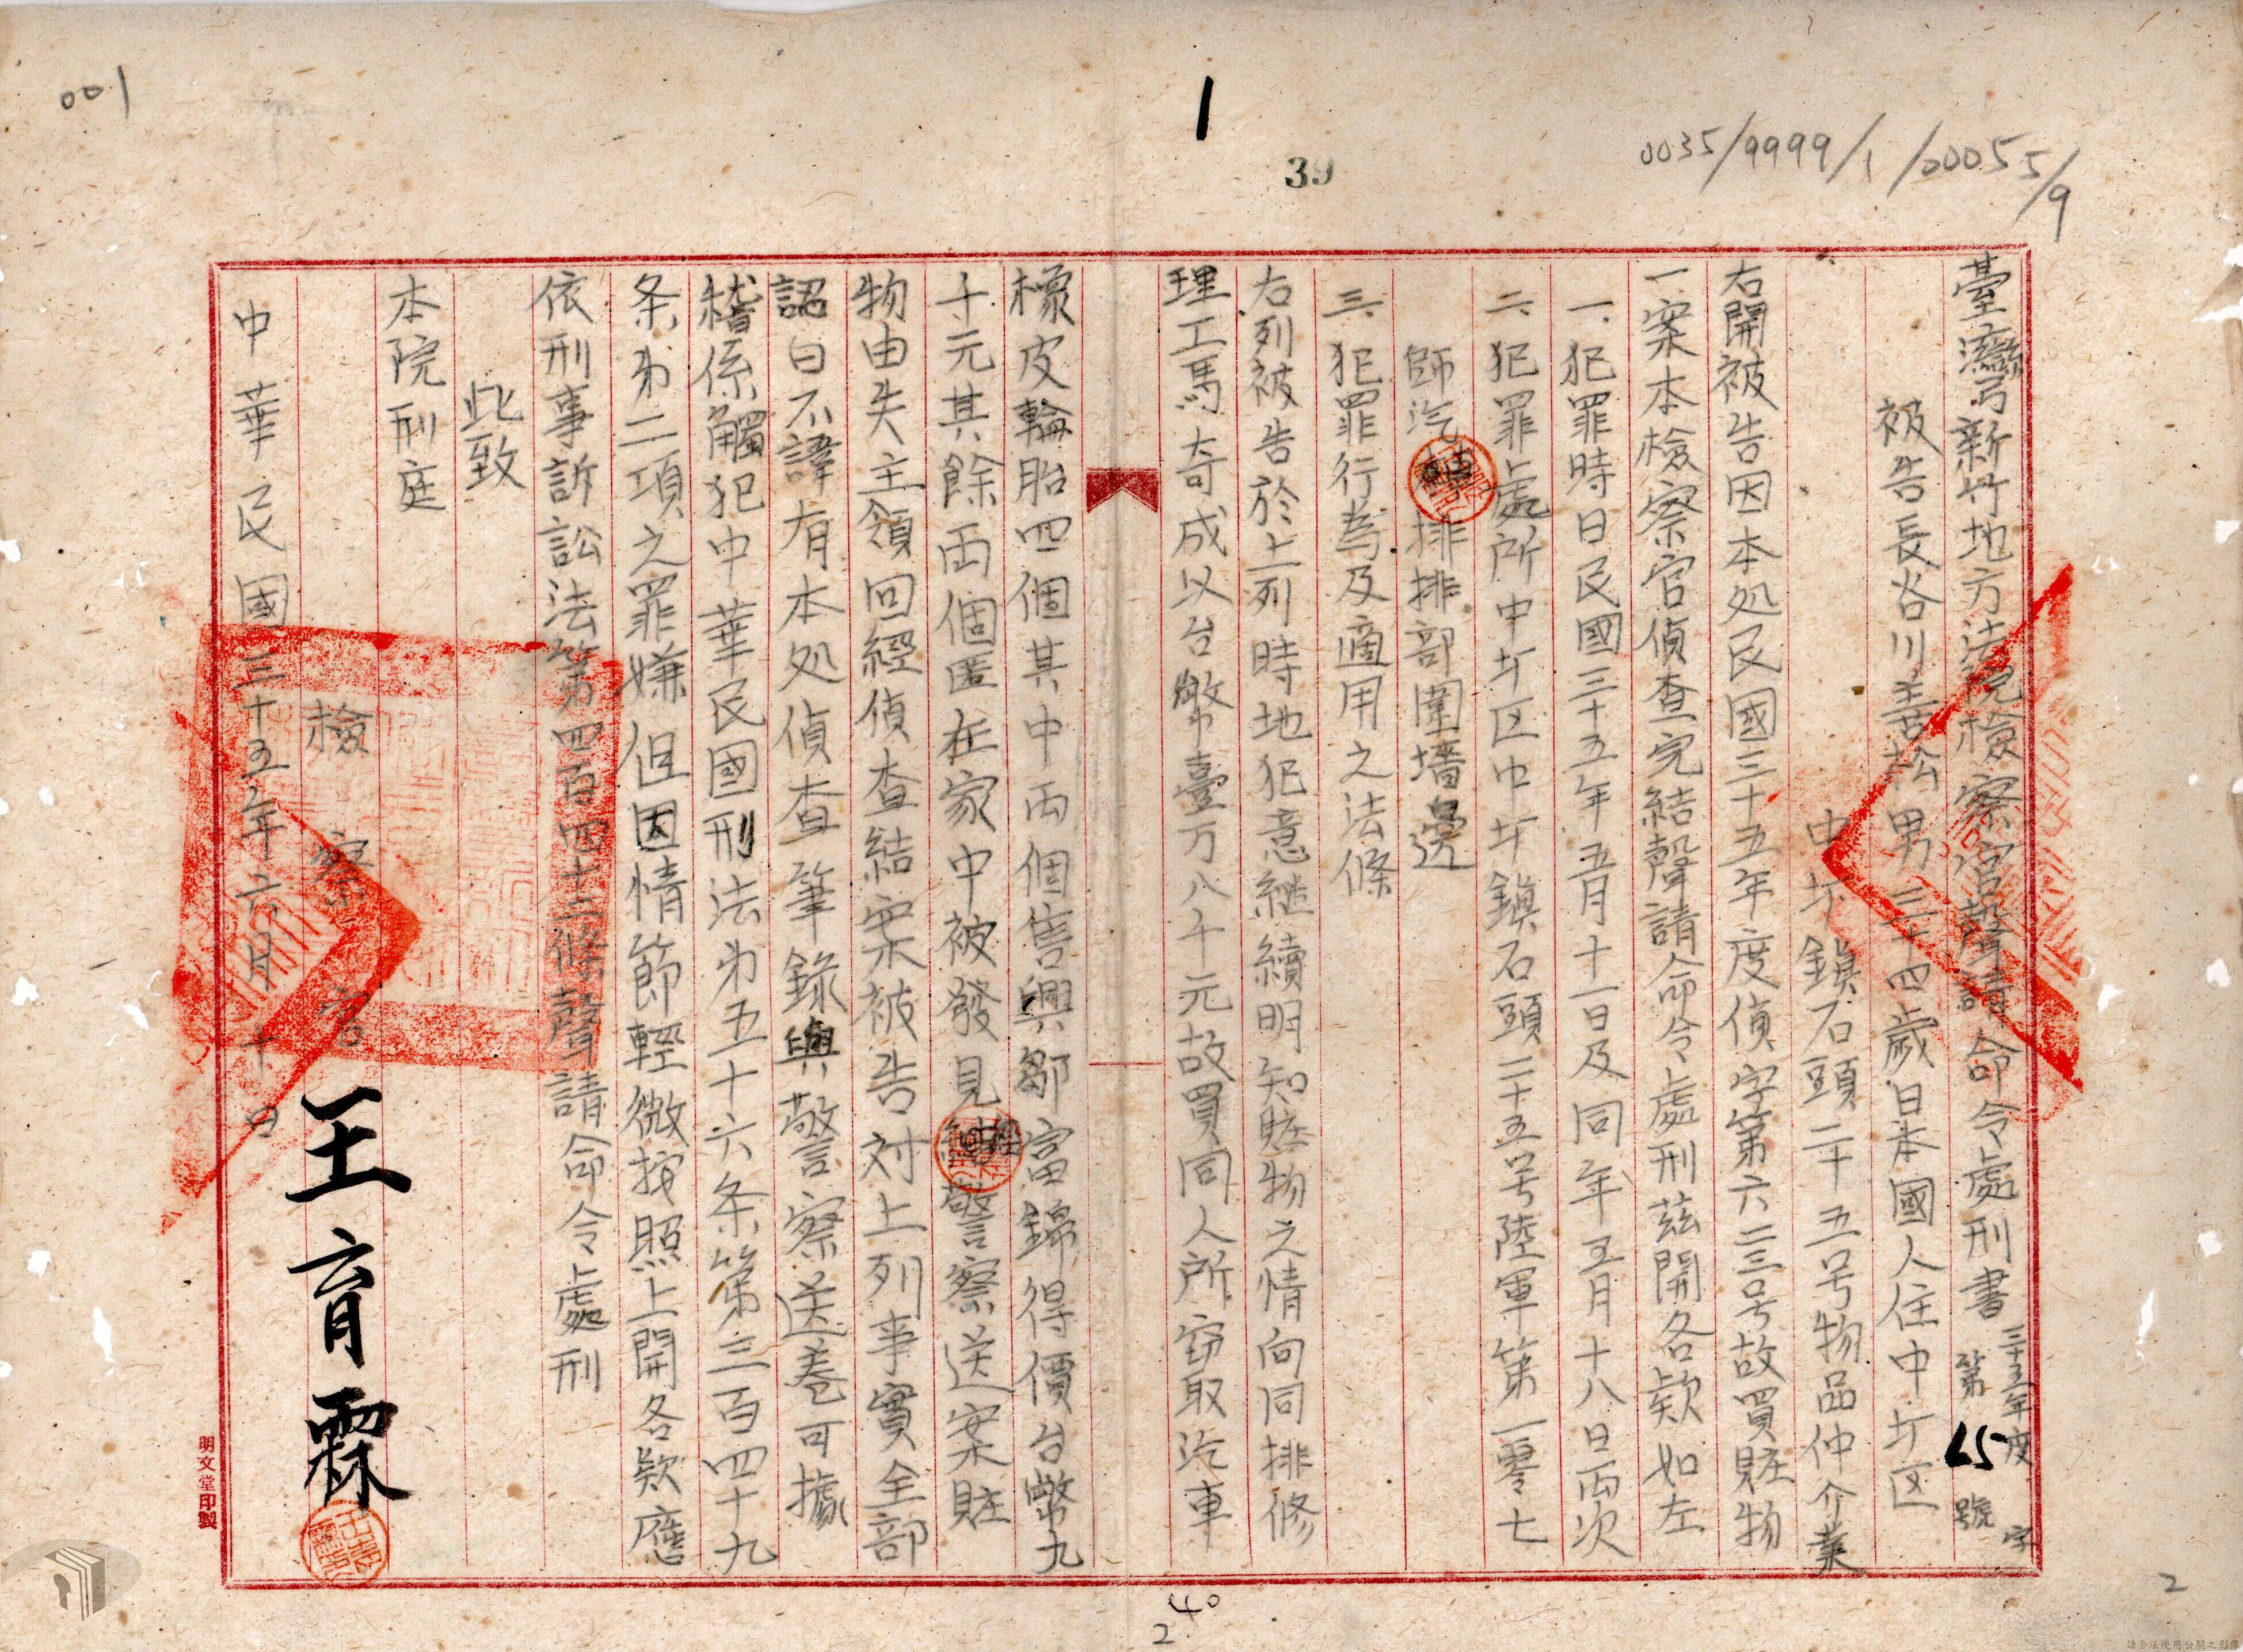 001
1
39
0035/9999/1/00055/9
臺灣新竹地方法院檢察官聲請命令處刑書 三十五年度 字第15號
被告長谷川善松男三十四歲日本國人住中圻区
中圻鎮石頭二十五号物品仲介業
右開被告因本処民國三十五年度偵字第六二三号故買賍物
一案本檢察官偵查完結聲請命令處刑茲開各款如左
一、犯罪時日民國三十五年五月十一日及同年五月十八日兩次
二、犯罪處所中圻区中圻鎮石頭二十五号陸軍第一零七
師汽 排排部圍墻邊
三、犯罪行為及適用之法條
右列被告於上列時地犯意繼續明知賍物之情向同排修
理工馬奇成以台幣臺万八千元故買同人所窃取汽車
橡皮輪胎四個其中兩個售與鄒富錦得價台幣九
千元其餘兩個匿在家中被發見 警察送案賍
物由失主領回經偵查結案被告対上列事實全部
認白不諱有本処偵查筆錄與警察送卷可據
稽係觸犯中華民國刑法弟五十六条第三百四十九
条弟二項之罪嫌但因情節輕微按照上開各款應
依刑事訴訟法第四百四十二條聲請命令處刑
此致
本院刑庭
檢察官 王育霖
中華民國三十五年六月十日
明文堂印製
40
2
2
請合法使用公開之影像